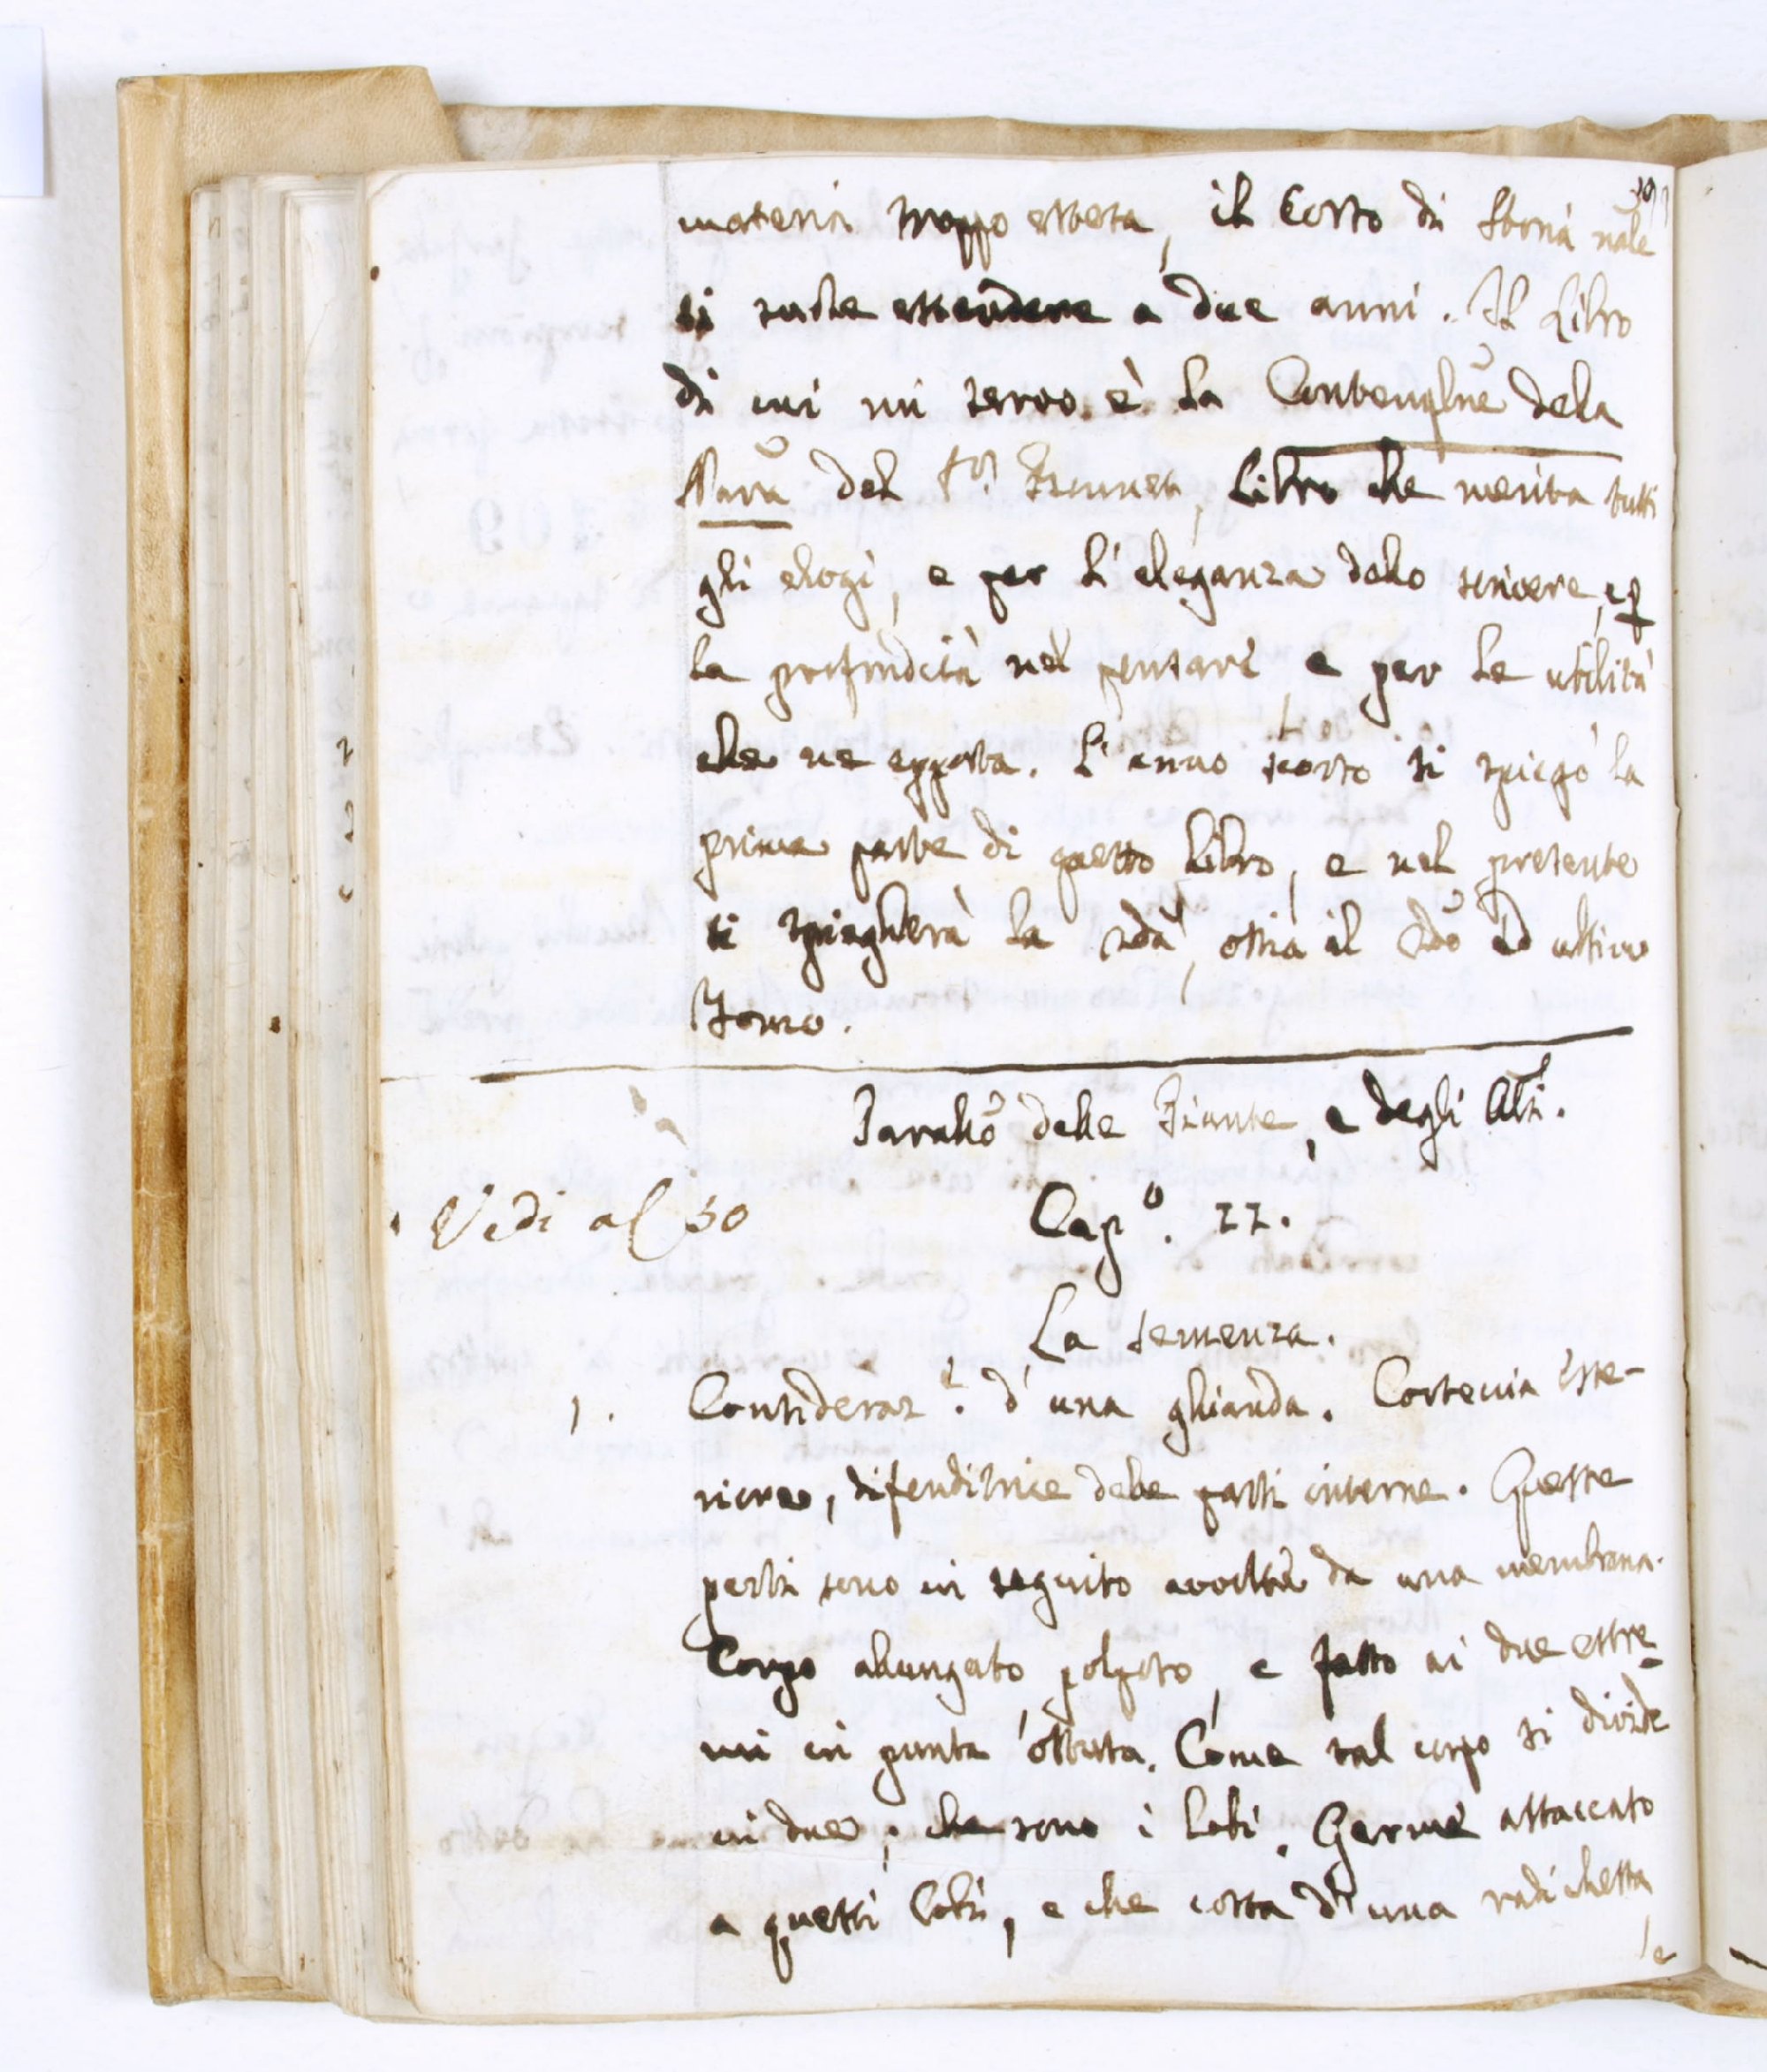 materia troppo estesa, il Corso di Storia nale
si suole estendere a due anni. Il Libro
di cui mi servo è la Contemplne dela
Nara del Sr. Bonnet, Libro che merita tutti
gli elogi, e per l'eleganza dello scrivere, e p
la profondità nel pensare, e per le utilità
che ne apporta. L'anno scorso si spiegò la
prima parte di questo Libro, e nel presente
si spiegherà la 2da, ossia il 2do ed ultimo
Tomo.
Paralló delle Piante, e degli Ali.
Vedi al 30
Capo. 22.
La semenza.
1. Consideraze. d'una ghianda. Corteccia este-
riore, difenditrice delle parti interne. Queste
parti sono in seguito avolte da una membrana.
Corpo allungato, polposo, e fatto ai due estre-
mi in punta ottusa. Come tal corpo si divide
in due, che sono i lobi. Germe attaccato
a questi lobi, e che costa d'una radichetta,
e